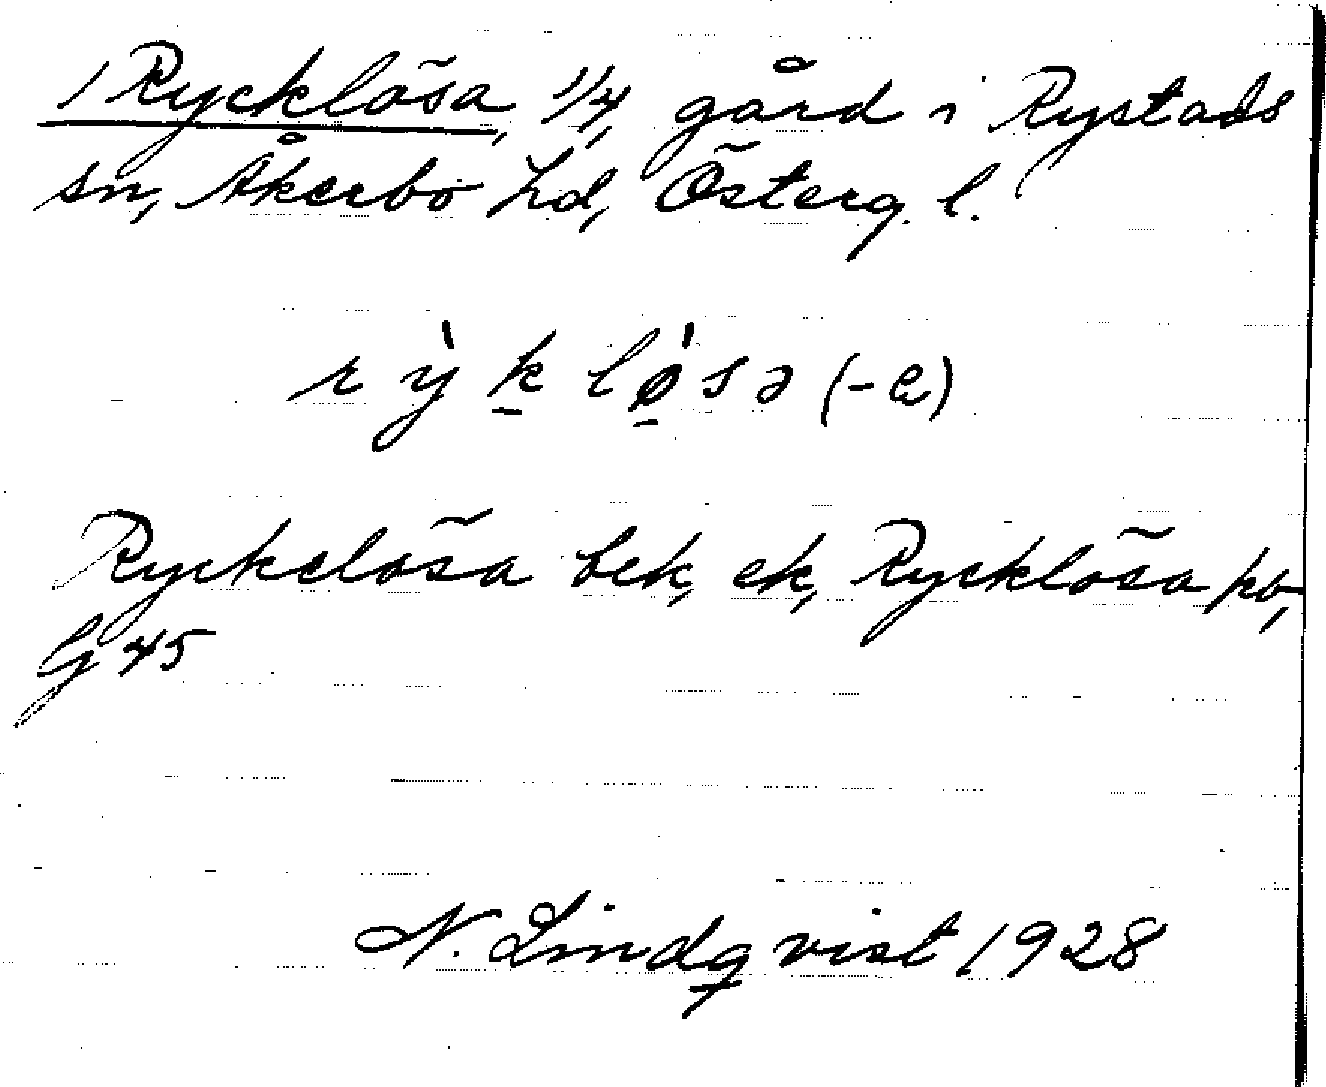 1 Rycklösa, 1/4, gård i Rystads
sn, Åkerbo hd, Österg. l.
rỳklø̀sə (-a)
Ryckelösa bek, ek, Rycklösa kb,
G 45
N. Lindqvist 1928